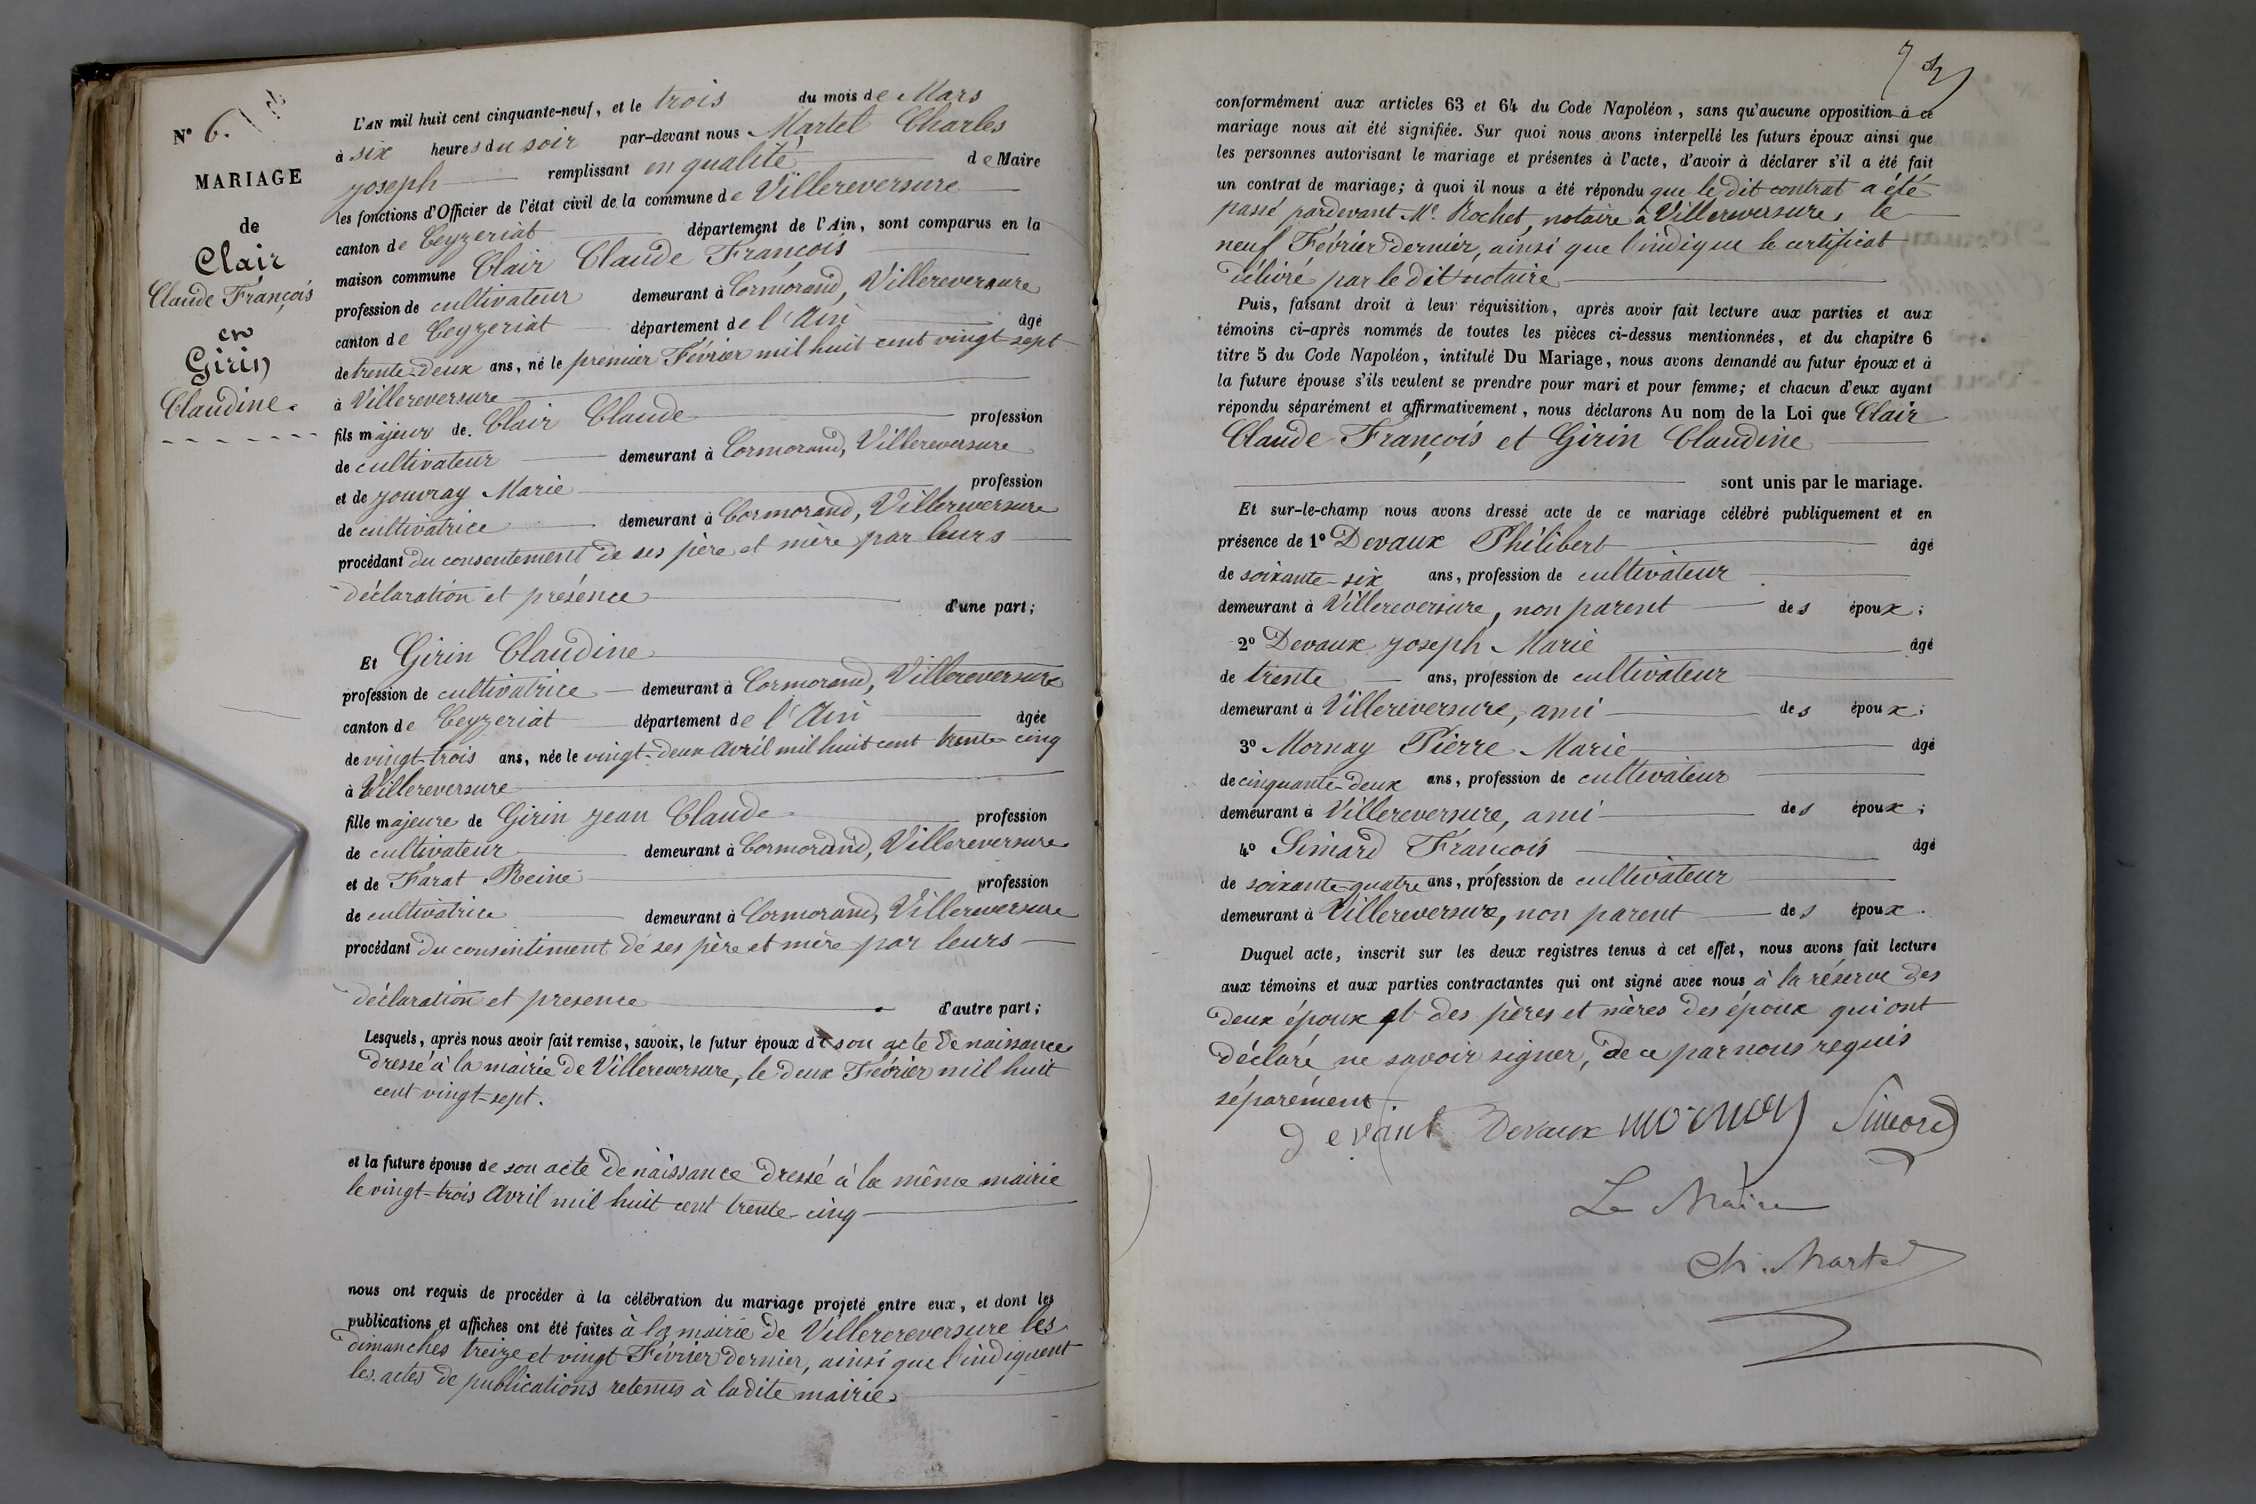 N° 6.
MARIAGE
de
Clair
Claude François
en
Girin
Claudine.
L'AN mil huit cent cinquante-neuf, et le trois du mois de Mars
à six heures du soir par-devant nous Martel Charles
joseph remplissant en qualité de Maire
les fonctions d'Officier de l'état civil de la commune de Villereversure
canton de Ceyzeriat département de l'Ain, sont comparus en la
maison commune Clair Claude François
profession de cultivateur demeurant à Cormorand, Villereversure
canton de Ceyzeriat département de l'Ain âgé
de trente-deux ans, né le premier Février mil huit cent vingt-sept
à Villereversure
fils majeur de Clair Claude profession
de cultivateur demeurant à Cormorand, Villereversure
et de jouvray Marie profession
de cultivatrice demeurant à Cormorand, Villereversure
procédant du consentement de ses père et mère par leurs
déclaration et présence d'une part;
Et Girin Claudine
profession de cultivatrice demeurant à Cormorand, Villereversure
canton de Ceyzeriat département de l'Ain âgée
de vingt-trois ans, née le vingt-deux avril mil huit cent trente-cinq
à Villereversure
fille majeure de Girin jean Claude profession
de cultivateur demeurant à Cormorand, Villereversure
et de Farat Reine profession
de cultivatrice demeurant à Cormorand, Villereversure
procédant du consentiment de ses père et mère par leurs
déclaration et presence d'autre part;
Lesquels, après nous avoir fait remise, savoir, le futur époux de son acte de naissance
dressé à la mairie de Villereversure, le deux Février mil huit
cent vingt-sept.
et la future épouse de son acte de naissance dressé à la même mairie
le vingt-trois avril mil huit cent trente-cinq
nous ont requis de procéder à la célébration du mariage projeté entre eux, et dont les
publications et affiches ont été faites à la mairie de Villerereversure les
dimanches treize et vingt Février dernier, ainsi que l'indiquent
les actes de publications retenus à ladite mairie
conformément aux articles 63 et 64 du Code Napoléon, sans qu'aucune opposition à ce
mariage nous ait été signifiée. Sur quoi nous avons interpellé les futurs époux ainsi que
les personnes autorisant le mariage et présentes à l'acte, d'avoir à déclarer s'il a été fait
un contrat de mariage; à quoi il nous a été répondu que le dit contrat a été
passé pardevant Me. Rochet, notaire à Villereversure, le
neuf Février dernier, ainsi que l'indique le certificat
délivré par le dit notaire
Puis, faisant droit à leur réquisition, après avoir fait lecture aux parties et aux
témoins ci-après nommés de toutes les pièces ci-dessus mentionnées, et du chapitre 6
titre 5 du Code Napoléon, intitulé Du Mariage, nous avons demandé au futur époux et à
la future épouse s'ils veulent se prendre pour mari et pour femme; et chacun d'eux ayant
répondu séparément et affirmativement, nous déclarons Au nom de la Loi que Clair
Claude François et Girin Claudine
sont unis par le mariage.
Et sur-le-champ nous avons dressé acte de ce mariage célébré publiquement et en
présence de 1° Devaux Philibert âgé
de soixante-six ans, profession de cultivateur
demeurant à Villereversure, non parent des époux;
2° Devaux joseph Marie âgé
de trente ans, profession de cultivateur
demeurant à Villereversure, ami des époux;
3° Mornay Pierre Marie âgé
de cinquante-deux ans, profession de cultivateur
demeurant à Villereversure, ami des époux;
4° Simard François âgé
de soixante-quatre ans, profession de cultivateur
demeurant à Villereversure, non parent des époux.
Duquel acte, inscrit sur les deux registres tenus à cet effet, nous avons fait lecture
aux témoins et aux parties contractantes qui ont signé avec nous à la réserve des
deux époux et des pères et mères des époux qui ont
déclaré ne savoir signer, de ce par nous requis
séparément.
Devaux mornay Simard
Le Maire
Ch. Martel